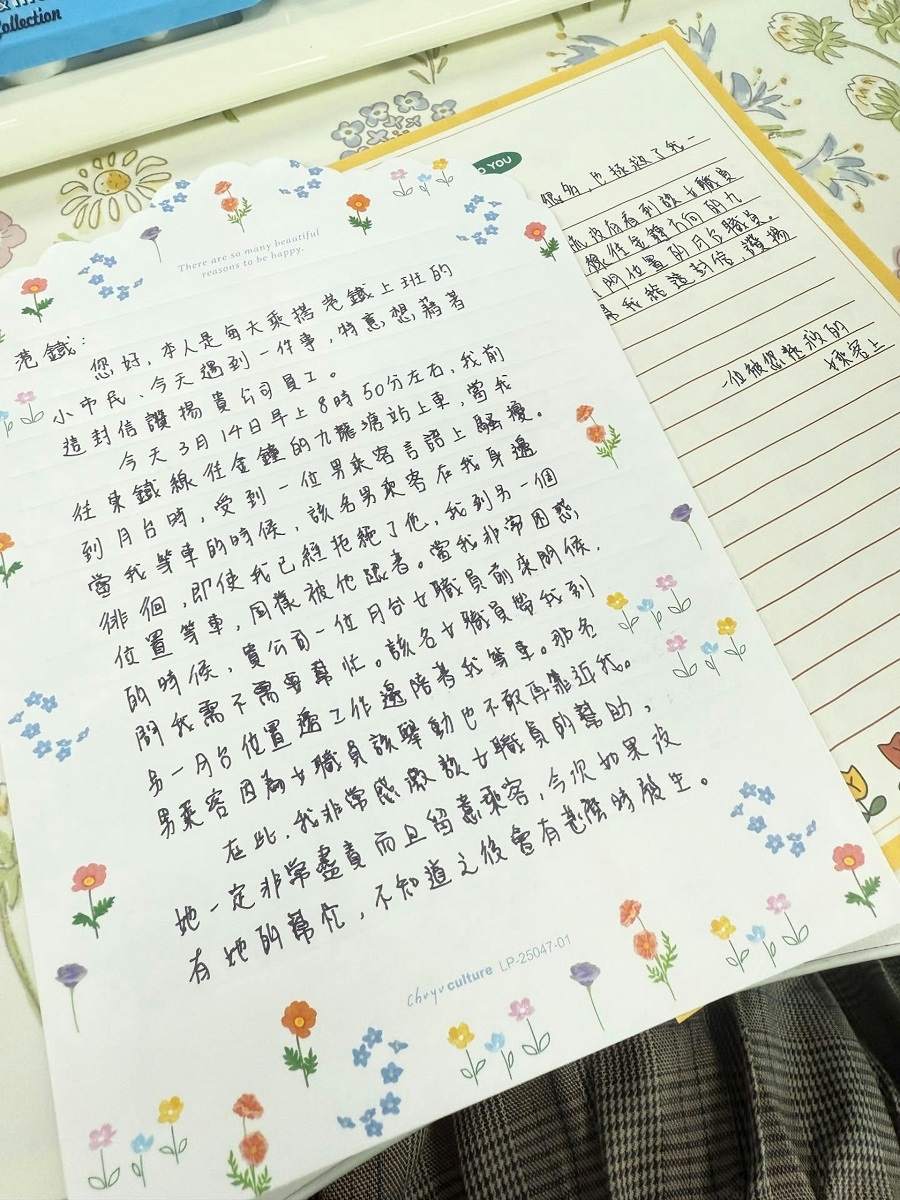 Collection
There are so many beautiful
reasons to be happy.
港鐵：
您好，本人是每天乘搭港鐵上班的
小市民，今天遇到一件事，特意想藉著
這封信讚揚貴公司員工。
今天3月14日早上8時50分左右，我前
往東鐵線往金鐘的九龍塘站上車，當我
到月台時，受到一位男乘客言語上騷擾。
當我等車的時候，該名男乘客在我身邊
徘徊，即使我已經拒絕了他，我到另一個
位置等車，同樣被他跟著。當我非常困惑
的時候，貴公司一位月台女職員前來問候，
問我需不需要幫忙。該名女職員帶我到
另一月台位置邊工作邊陪著我等車。那名
男乘客因為女職員該舉動也不敢再靠近我。
在此，我非常感激該女職員的幫助，
她一定非常盡責而且留意乘客，今次如果沒
有她的幫忙，不知道之後會有甚麼時發生。
culture LP-25047-01
YOU
很多，也拯救了我一
有看到該女職員
線往金鐘方向的九
門位置的月台職員。
我給這封信讚揚
一位被您拯救的
乘客上